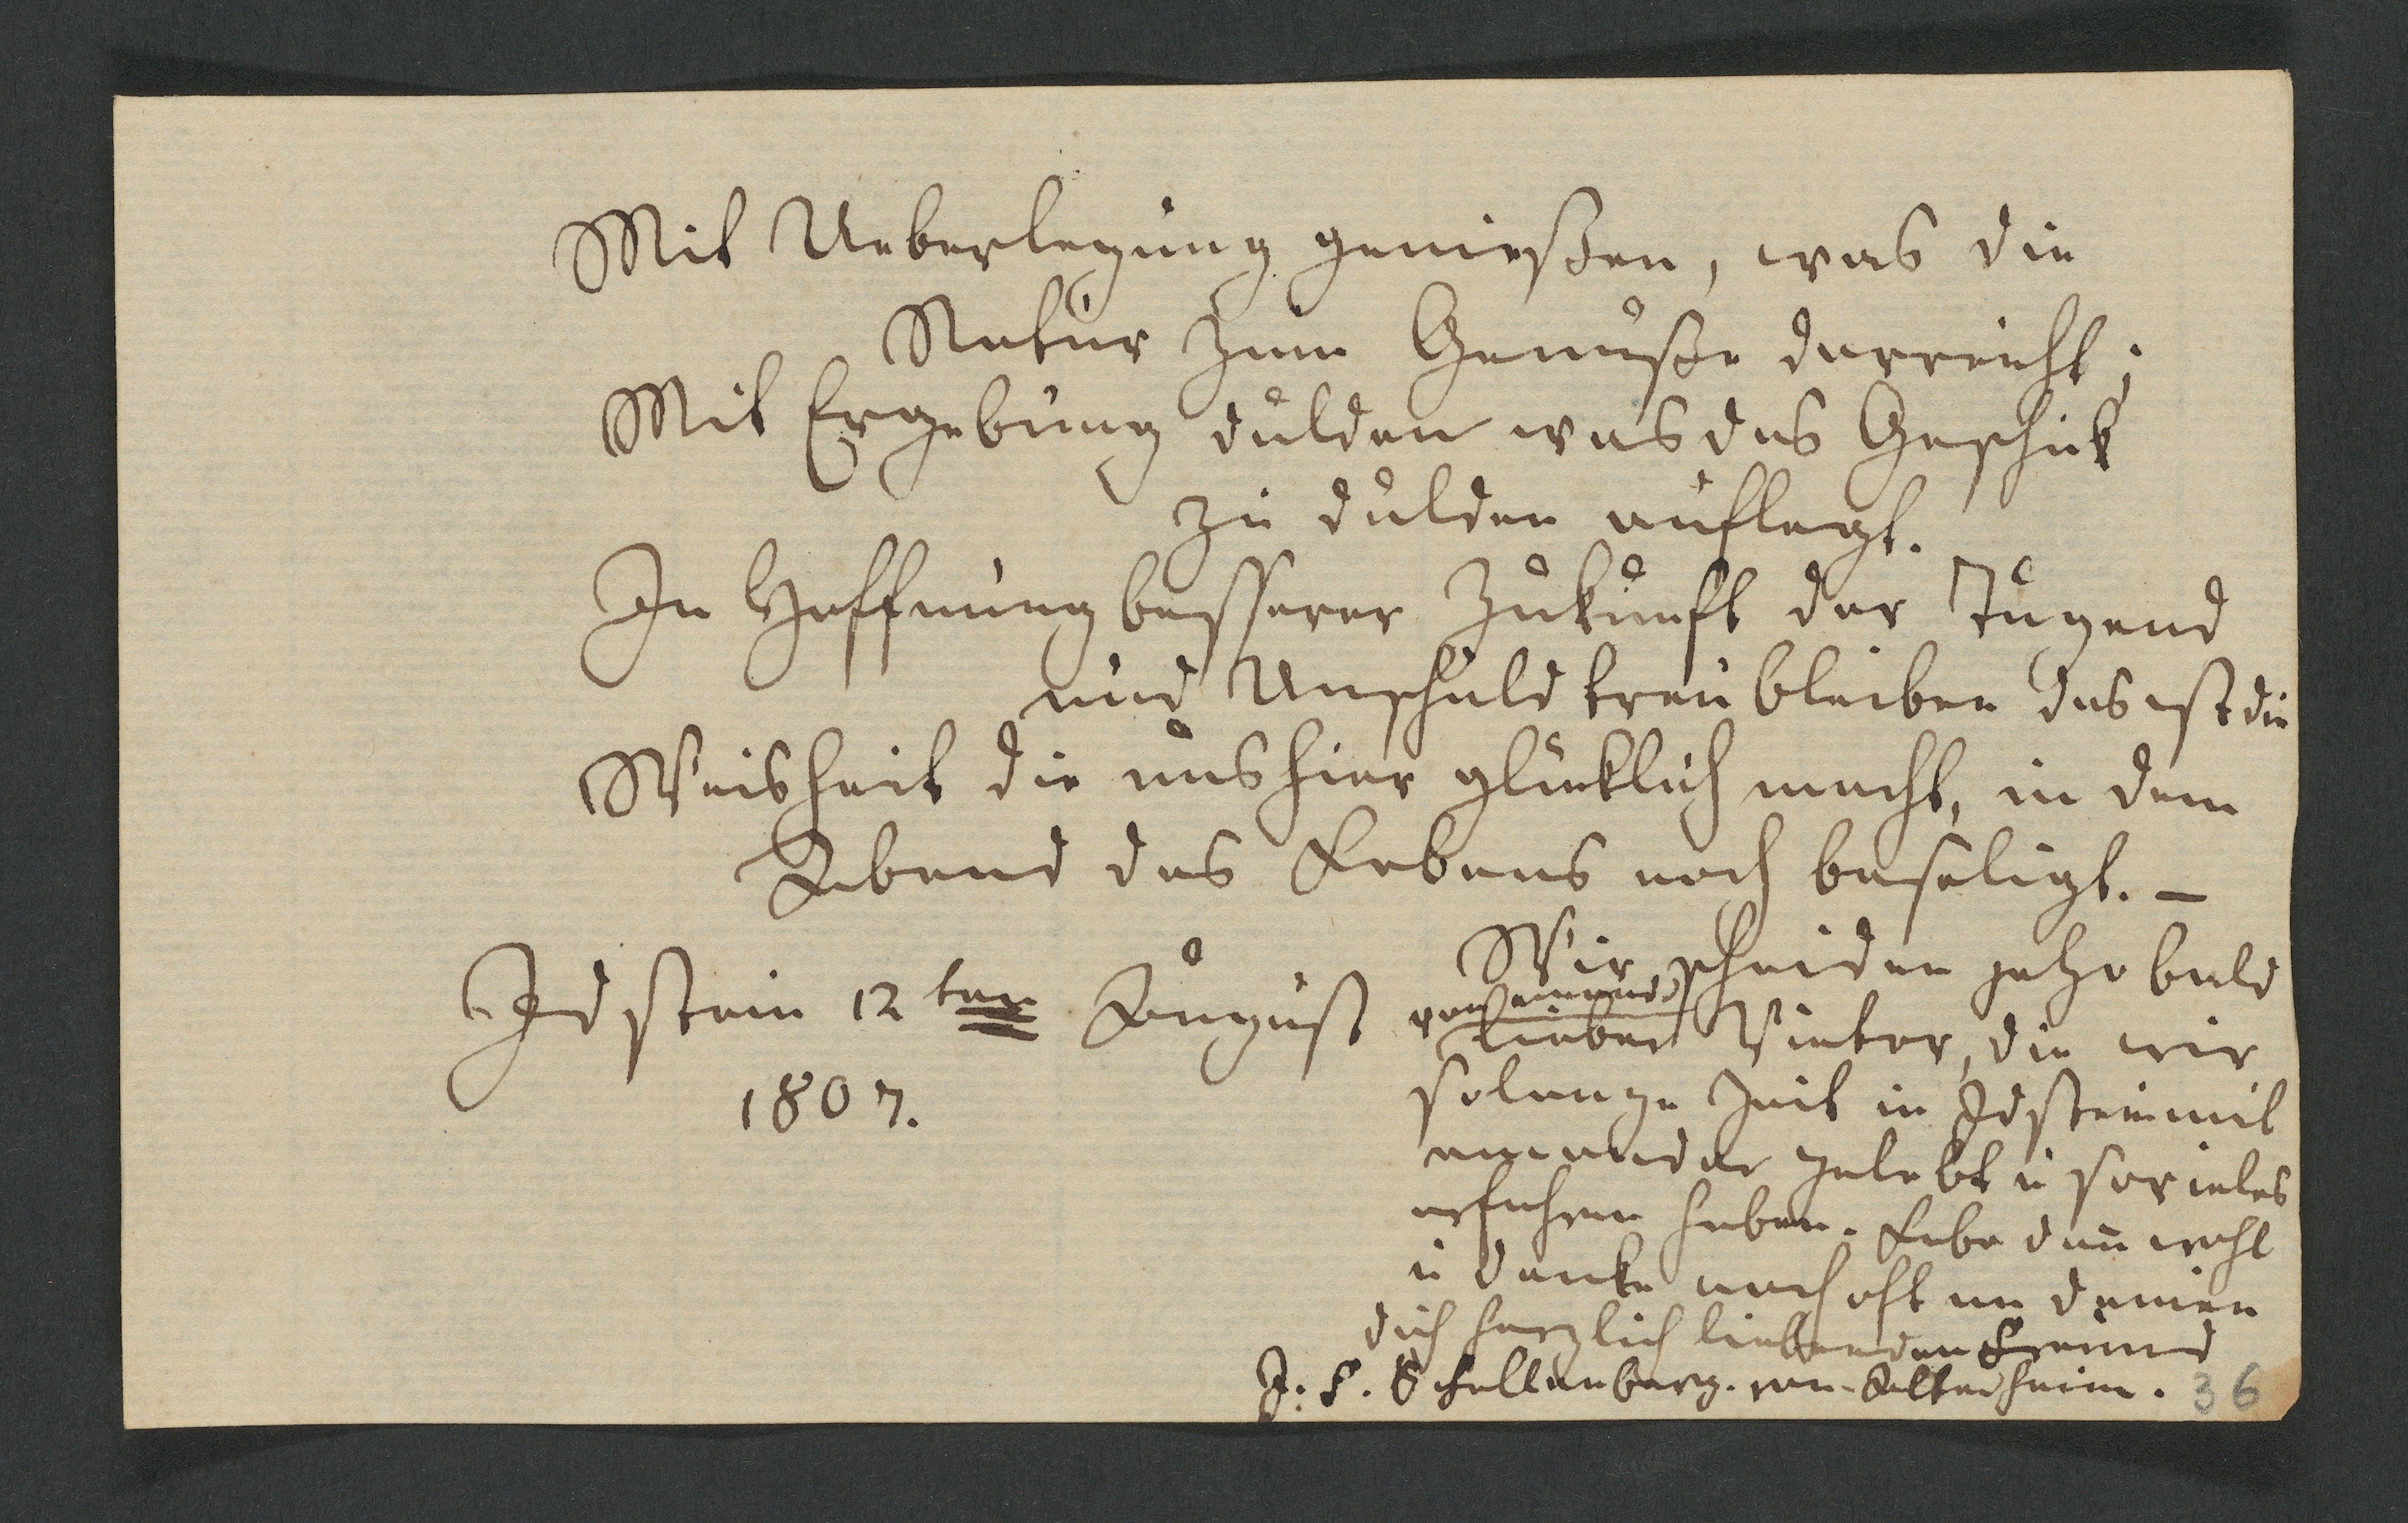 Mit Ueberlegung genießen, was die
Natur zum Genuße darreicht;
Mit Ergebung dulden was das Geschik
zu dulden auflegt.
In Hoffnung besserer Zukunft der Tugend
und Unschuld treu bleiben das ist die
Weisheit die uns hier glüklich macht, in dem
Abend des Lebens noch beseligt. –
Idstein 12ten August
1807.
Wir scheiden jezo bald
von einand
lieber Vietor, die wir
solange Zeit in Idstein mit
einander gelebt u sovieles
erfahren haben. Lebe dan̄ wohl
u denke noch oft an deinen
dich herzlich liebenden Freund
J. F. Schellenberg. von
36